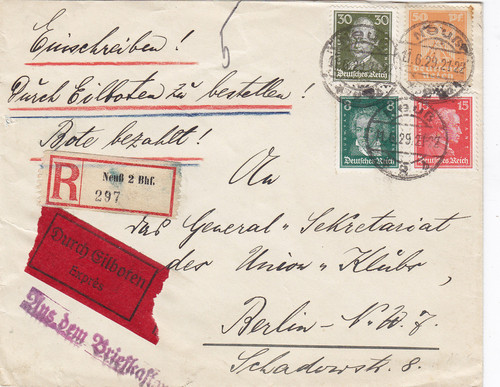 Einschreiben!
Durch Eilboten zu bestellen!
Bote bezahlt!
30
Deutsches Reich
50 Pf
8
Deutsches Reich
15
Deutsches Reich
NEUSS
21.6.29.21-22
R
Neuß 2 Bhf.
297
Durch Eilboten
Exprès
Aus dem Briefkasten
An
das General-Sekretariat
des Union-Klubs,
Berlin-N.W.7.
Schadowstr. 8.